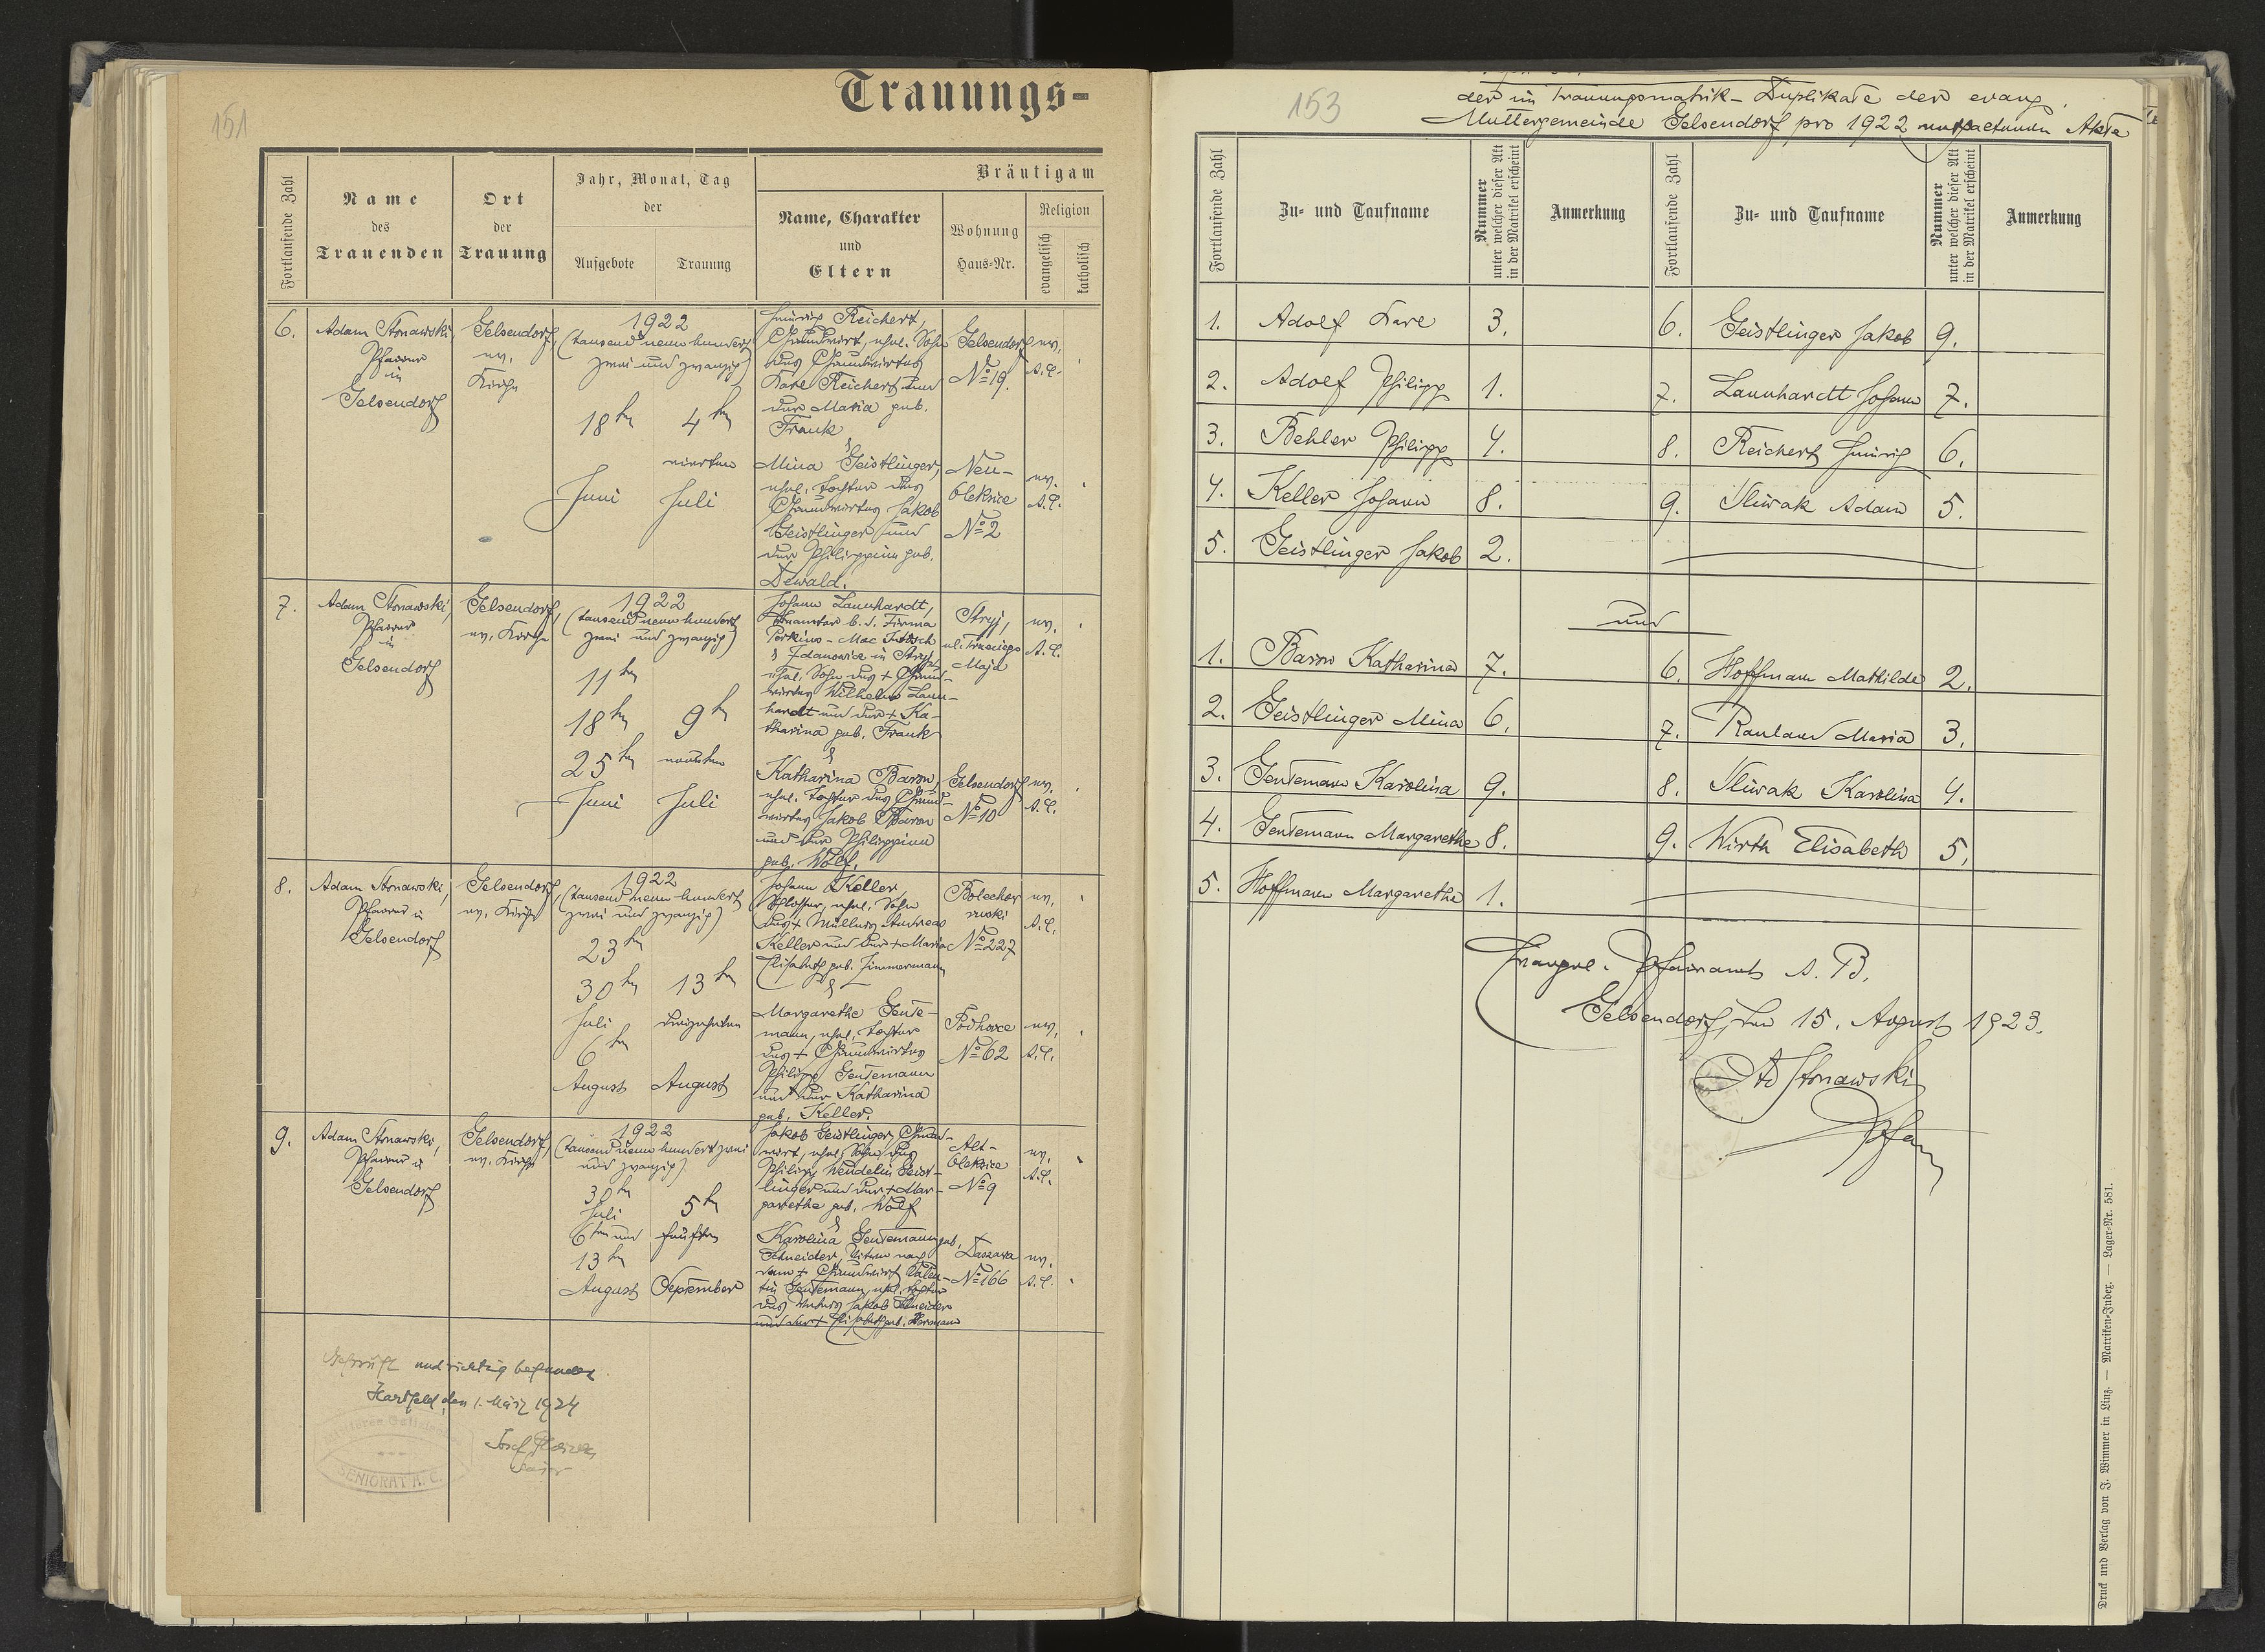 151
Trauungs-
Fortlaufende Zahl
Name
des
Trauenden
Ort
der
Trauung
Jahr, Monat, Tag
der
Aufgebote
Trauung
Bräutigam
Name, Charakter
und
Eltern
Wohnung
Haus-Nr.
Religion
evangelisch
katholisch
6.
Adam Stonawski,
Pfarrer
in
Gelsendorf
Gelsendorf,
ev.
Kirche
1922
(tausend neun hundert
zwei und zwanzig)
18ten
Juni
4ten
vierten
Juli
Heinrich Reichert,
Grundwirt, ehel. Sohn
des Grundwirtes
Karl Reichert und
der Maria geb.
Frank
&
Mina Geistlinger,
ehel. Tochter des
Grundwirtes Jakob
Geistlinger und
der Philippine geb.
Dewald.
Gelsendorf
No 19.
ev.
A.C.
Neu-
Oleksice
No 2
ev.
A.C.
7.
Adam Stonawski,
Pfarrer
in
Gelsendorf
Gelsendorf,
ev. Kirche
1922
(tausend neun hundert
zwei und zwanzig)
11ten
18ten
25ten
Juni
9ten
neunten
Juli
Johann Launhardt,
Beamter b. d. Firma
Perkins - Mac Intosch
& Zdanowicz in Stryj,
ehel. Sohn des + Grund-
wirtes Wilhelm Laun-
hardt und der + Ka-
tharina geb. Frank
&
Katharina Baron,
ehel. Tochter des Grund-
wirtes Jakob Baron
und der Philippine
geb. Wolf.
Stryj,
ul. Trzeciego
Maja
ev.
A.C.
Gelsendorf
No 10
ev.
A.C.
8.
Adam Stonawski,
Pfarrer in
Gelsendorf
Gelsendorf,
ev. Kirche
1922
(tausend neun hundert
zwei und zwanzig)
23ten
30ten
Juli
6ten
August
13ten
dreizehnten
August
Johann Keller,
Schlosser, ehel. Sohn
des + Müllers Andreas
Keller und der + Maria
Elisabeth geb. Zimmermann
&
Margarethe Gente-
mann, ehel. Tochter
des + Grundwirtes
Philipp Gentemann
und der Katharina
geb. Keller.
Bolechow
ruski
No 227
ev.
A.C.
Podhorce
No 62
ev.
A.C.
9.
Adam Stonawski,
Pfarrer in
Gelsendorf
Gelsendorf,
ev. Kirche
1922
(tausend neun hundert zwei
und zwanzig)
30ten
Juli
6ten und
13ten
August
5ten
fünften
September
Jakob Geistlinger, Grund-
wirt, ehel. Sohn des
Philipp Wendelin Geist-
linger und der + Mar-
garethe geb. Wolf
&
Karolina Gentemann geb.
Schneider, Witwe nach
dem + Grundwirt Valen-
tin Gentemann, ehel. Tochter
des Webers Jakob Schneider
und der + Elisabeth geb. Hermann
Alt-
Oleksice
No 9
ev.
A.C.
Daszawa
No 166
ev.
A.C.
Geprüft und richtig befunden
Hartfeld, den 1. März 1924
Josef
Senior
SENIORAT A. C.
153
der im Trauungsmatrik-Duplikate der evang.
Muttergemeinde Gelsendorf pro 1922 enthaltenen Akte
Fortlaufende Zahl
Zu- und Taufname
Nummer
unter welcher dieser Akt
in der Matrikel erscheint
Anmerkung
Fortlaufende Zahl
Zu- und Taufname
Nummer
unter welcher dieser Akt
in der Matrikel erscheint
Anmerkung
1. Adolf Karl 3.
6. Geistlinger Jakob 9.
2. Adolf Philipp 1.
7. Launhardt Johann 7.
3. Behler Philipp 4.
8. Reichert Heinrich 6.
4. Keller Johann 8.
9. Sliwak Adam 5.
5. Geistlinger Jakob 2.
und
1. Baron Katharina 7.
6. Hoffmann Mathilde 2.
2. Geistlinger Mina 6.
7. Rauland Maria 3.
3. Gentemann Karolina 9.
8. Sliwak Karolina 4.
4. Gentemann Margarethe 8.
9. Wirth Elisabeth 5.
5. Hoffmann Margarethe 1.
Evangel. Pfarramt A. B.
Gelsendorf, den 15. August 1923.
Ad Stonawski
Pfarrer
Druck und Verlag von J. Wimmer in Linz. — Matriken-Index. — Lager-Nr. 581.